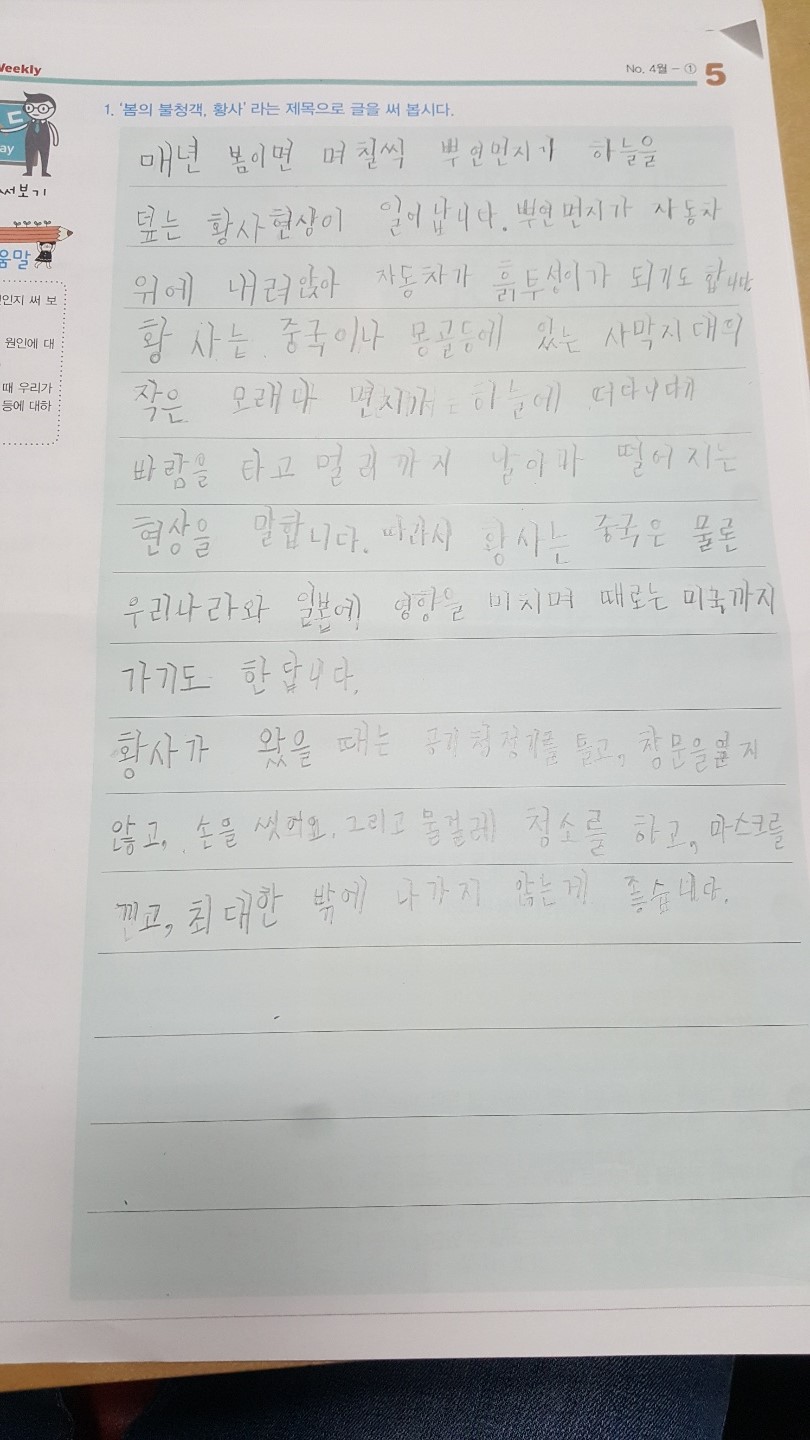 Weekly
No. 4월 - ① 5
1. '봄의 불청객, 황사' 라는 제목으로 글을 써 봅시다.
ay
써보기
움말
인지 써 보
원인에 대
때 우리가
등에 대하
매년 봄이면 며칠씩 뿌연먼지가 하늘을
덮는 황사현상이 일어납니다. 뿌연먼지가 자동차
위에 내려앉아 자동차가 흙투성이가 되기도 합니다
황사는 중국이나 몽골등에 있는 사막지대의
작은 모래나 먼지가 하늘에 떠다니다가
바람을 타고 멀리까지 날아가 떨어지는
현상을 말합니다. 따라서 황사는 중국은 물론
우리나라와 일본에 영향을 미치며 때로는 미국까지
가기도 한답니다.
황사가 왔을 때는 공기청정기를 틀고, 창문을 열지
않고, 손을 씻어요. 그리고 물걸레 청소를 하고, 마스크를
끼고, 최대한 밖에 나가지 않는게 좋습니다.